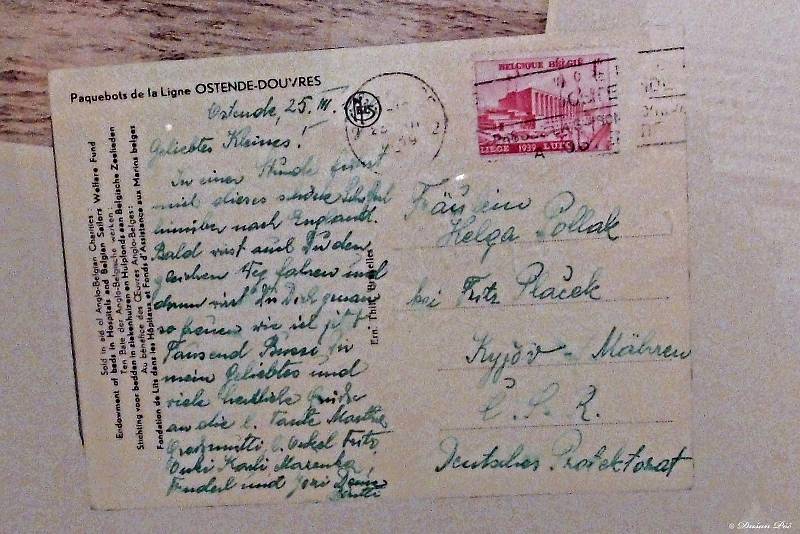 Paquebots de la Ligne OSTENDE-DOUVRES
Ostende, 25. III.
Geliebtes Kleines!
In einer Stunde fährt
mich dieses schöne Schifferl
hinüber nach England.
Bald wirst auch Du den
gleichen Weg fahren und
dann wirst Du Dich genau
so freuen wie ich jetzt
Tausend Bussi Dir
mein Geliebtes und
viele herzliche Grüße
an die l. Tante Marthe
Großmutti, l. Onkel Fritz,
Karli, Marenka,
und Joži Deine
Mutti
BELGIQUE BELGIË
LIEGE 1939 LUIK
Fräulein
Helga Pollak
bei Fritz Plaček
Kyjov - Mähren
Č. S. R.
Deutsches Protektorat
Sold in aid of Anglo-Belgian Charities:
Endowment of beds in Hospitals and Belgian Sailors Welfare Fund
Ten Bate der Anglo-Belgische werken:
Stichting voor bedden in ziekenhuizen en Hulpfonds aan Belgische Zeelieden
Au bénéfice des Œuvres Anglo-Belges:
Fondation de Lits dans les Hôpitaux et Fonds d'Assistance aux Marins belges
Ern. Thill, Bruxelles
© Dušan Pěč